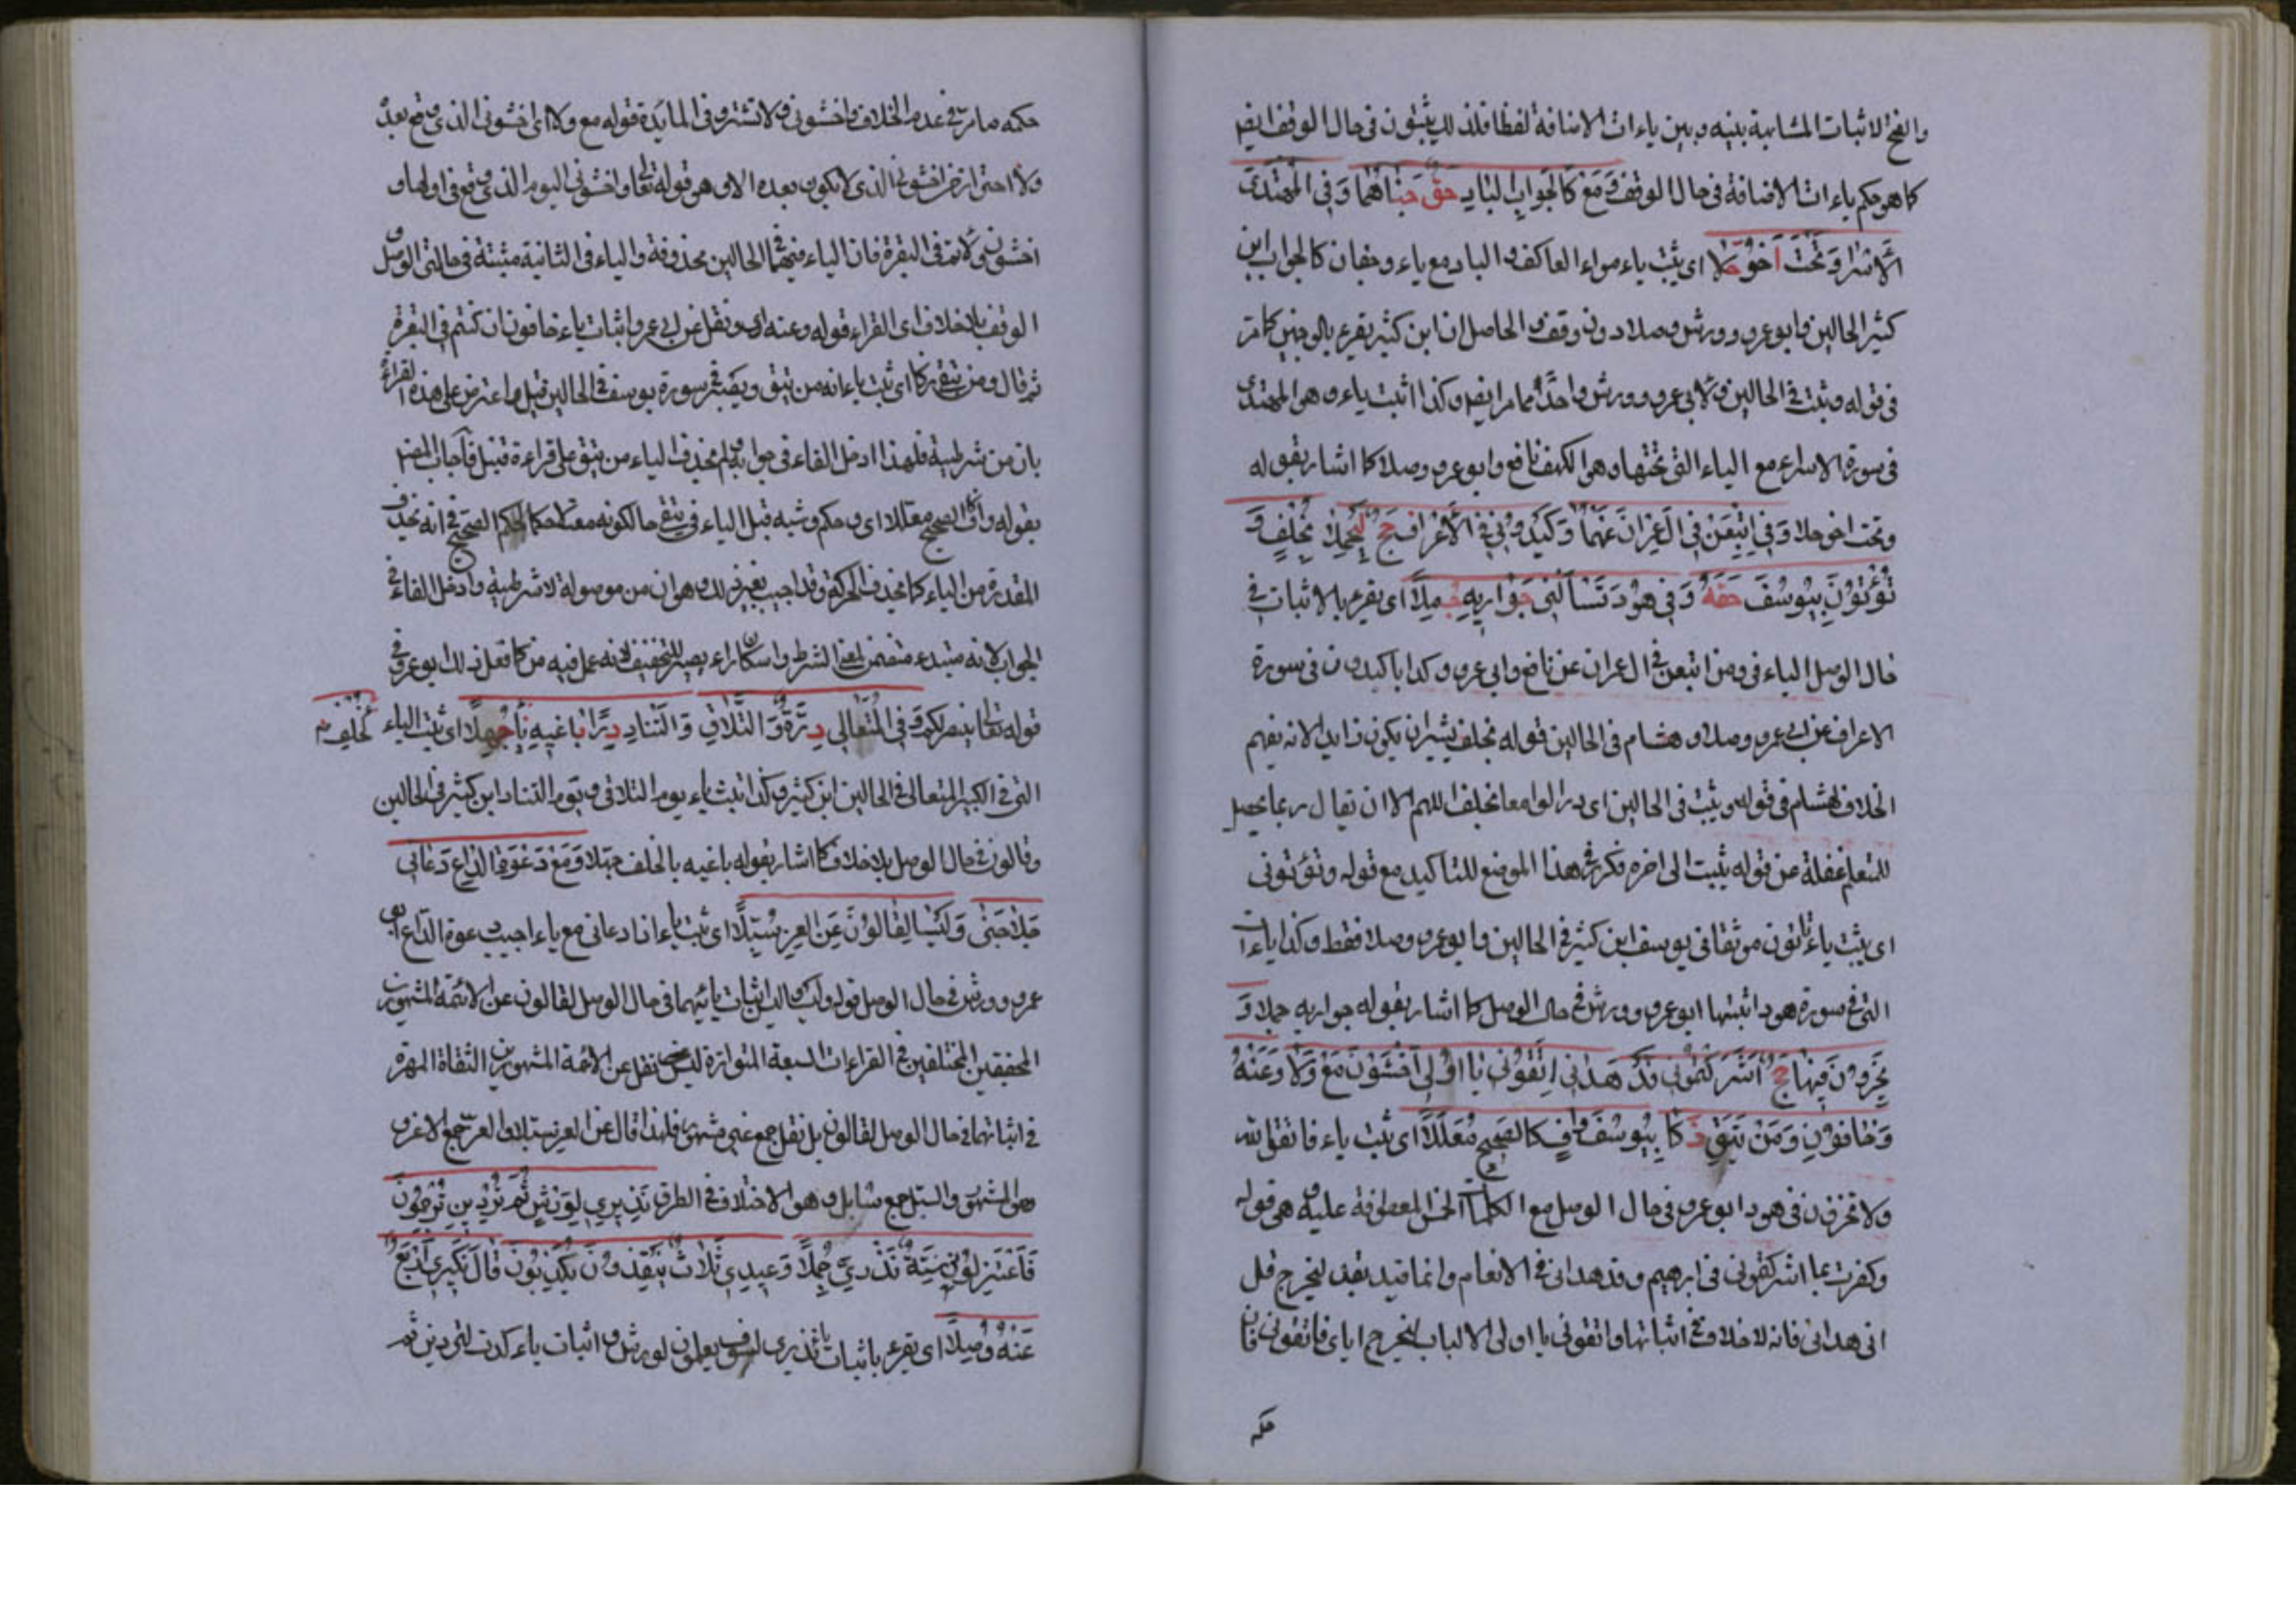 والفتح لاثبات المشابهة بينه وبين ياءات الاضافة لفظا فلذلك يثبتون فى حال الوقف ايضا
كما هو حكم ياءات الاضافة فى حال الوقف وَمَعْ كَالْجَوَابِ الْبَادِ حَقٌّ جَنَاهُمَا وَفِى الْمُهْتَدِى
الْاِسْرَا وَتَحْتُ اَخُو حُلًا اى يثبت ياء سواء العاكف والباد مع ياء وجفان كالجواب ابن
كثير فى الحالين وابو عمرو وورش وصلا دون وقف والحاصل ان ابن كثير يقرء بالوجهين كما مر
فى قوله ويثبت فى الحالين ولابى عمرو وورش واحد مما مر ايضا وكذا اثبت ياء وهو المهتدى
فى سورة الاسراء مع الياء التى تحتها وهو الكهف نافع وابو عمرو وصلا كما اشار بقوله
وتحت اخو حلا وَفِى اتَّبَعَنْ فِى آلِ عِمْرَانَ عَنْهُمَا وَكِيدُونِ فِى الْاَعْرَافِ حَجَّ لِيُحْمَلَا بِخُلْفٍ وَ
تُؤْتُونِى بِيُوسُفَ حَقُّهُ وَفِى هُودَ تَسْأَلْنِى حَوَارِيهِ جَمَّلَا اى يقرء بالاثبات فى
حال الوصل الياء فى ومن اتبعن فى ال عمران عن نافع وابى عمرو وكذا ياء كيدون فى سورة
الاعراف عن ابى عمرو وصلا وهشام فى الحالين قوله بخلف يشير ان يكون زايدا لانه يفهم
الخلاف لهشام فى قوله ويثبت فى الحالين اى درا لوامعا بخلف اللهم الا ان يقال ربما يحصل
للمتعلم غفلة عن قوله يثبت الى اخره فكرر فى هذا الموضع للتاكيد مع قوله وتؤتونى
اى يثبت ياء تؤتون موثقا فى يوسف ابن كثير فى الحالين وابو عمرو وصلا فقط وكذا ياءات
التى فى سورة هود اثبتها ابو عمرو وورش فى حال الوصل كما اشار بقوله حواريه جملا وَ
تُخْزُونِ فِيهَا حَجَّ اَشْرَكْتُمُونِ قَدْ هَدَانِ اتَّقُونِ يَا اُولِى اخْشَوْنِ مَعْ وَلَا وَعَنْهُ
وَخَافُونِ وَمَنْ يَتَّقِى زَكَا بِيُوسُفَ وَافَى كَالصَّحِيحِ مُعَلَّلًا اى يثبت ياء فاتقوا الله
ولا تخزون فى هود ابو عمرو فى حال الوصل مع الكلمات الخمس المعطوفة عليه وهى قوله
وكفرت بما اشركتمونى فى ابرهيم وقد هدانى فى الانعام وانما قيد بقد ليخرج قل
انى هدانى فانه لا خلاف فى اثباتها واتقونى يا اولى الالباب ليخرج اياى فاتقونى فان
حكمه
حكمه ما مر فى عدم الخلاف واخشونى ولا تشتروا فى المايدة قوله مع ولا اى اخشونى الذى وقع بعده
ولا احترازا عن اخشونى الذى لا يكون بعده لا وهو قوله تعالى واخشونى اليوم الذى وقع فى اولها و
اخشونى ولاتم فى البقرة فان الياء منهما فى الحالين محذوفة والياء فى الثانية مثبتة فى حالتى الوصل و
الوقف بلا خلاف اى القراء قوله وعنه اى ونقل عن ابى عمرو اثبات ياء خافون ان كنتم فى البقرة
ثم قال ومن يتقى زكا اى يثبت ياء انه من يتق ويصبر فى سورة يوسف فى الحالين قنبل واعترض على هذه القراءة
بان من شرطية فلهذا ادخل الفاء فى جوابه ولم يحذف الياء من يتق على قراءة قنبل فأجاب المصنف
بقوله وافى كالصحيح معللا اى وحكم وشبه قنبل الياء فى يتقى حال كونه معتلا حكما كحكم الصحيح فى انه يحذف
المقدرة من الياء كما يحذف الحركة وقد اجيب بغير ذلك وهو ان من موصولة لا شرطية وادخل الفاء فى
الجواب لانه مبتدء متضمن لمعنى الشرط واسكان راء يصبر للتخفيف لا انه عمل فيه من كما فعل ذلك ابو عمرو فى
قوله تعالى ينصركم وَفِى الْمُتَعَالِى دُرُّهُ وَالتَّلَاقِ وَالتَّنَادِ دِرَا بَاغِيهِ بِالْخُلْفِ جُهِّلَا اى يثبت الياء
التى فى الكبير المتعالى فى الحالين ابن كثير وكذا يثبت ياء يوم التلاقى ويوم التناد ابن كثير فى الحالين
وقالون فى حال الوصل بلا خلاف كما اشار بقوله باغيه بالخلف جهلا وَمَعْ دَعْوَةَ الدَّاعِ دَعَانِى
حَلَا جَنًى وَلَيْسَا لِقَالُونٍ عَنِ الْغُرِّ سُبَّلَا اى يثبت ياء اذا دعانى مع ياء اجيب دعوة الداع ابو
عمرو وورش فى حال الوصل قوله وليسا اى ليس اثبات يائيهما فى حال الوصل لقالون عن الائمة المشهورين
المحققين المختلفين فى القراءات السبعة المتواترة ليس نقل عن الائمة المشهورين الثقاة المهرة
فى اثباتهما فى حال الوصل لقالون بل نقل جمع غير مشهور فلهذا قال عن الغر سبلا والغر جمع الاغر و
هو المشهور والسبل جمع سابل وهو الاختلاف فى الطرق نَذِيرِى لِوَرْشٍ ثُمَّ تُرْدِينِ تَرْجُمُونَ
فَاعْتَزِلُونِ سِتَّةٌ نُذُرِى جَلَا وَعِيدِى ثَلَاثٌ يُنْقِذُونِ يُكَذِّبُونِ قَالَ نَكِيرِى اَرْبَعٌ
عَنْهُ وُصِّلَا اى يقرء باثبات ياء نذيرى فسوف يعلمون لورش واثبات ياء كدت لتردين ثم